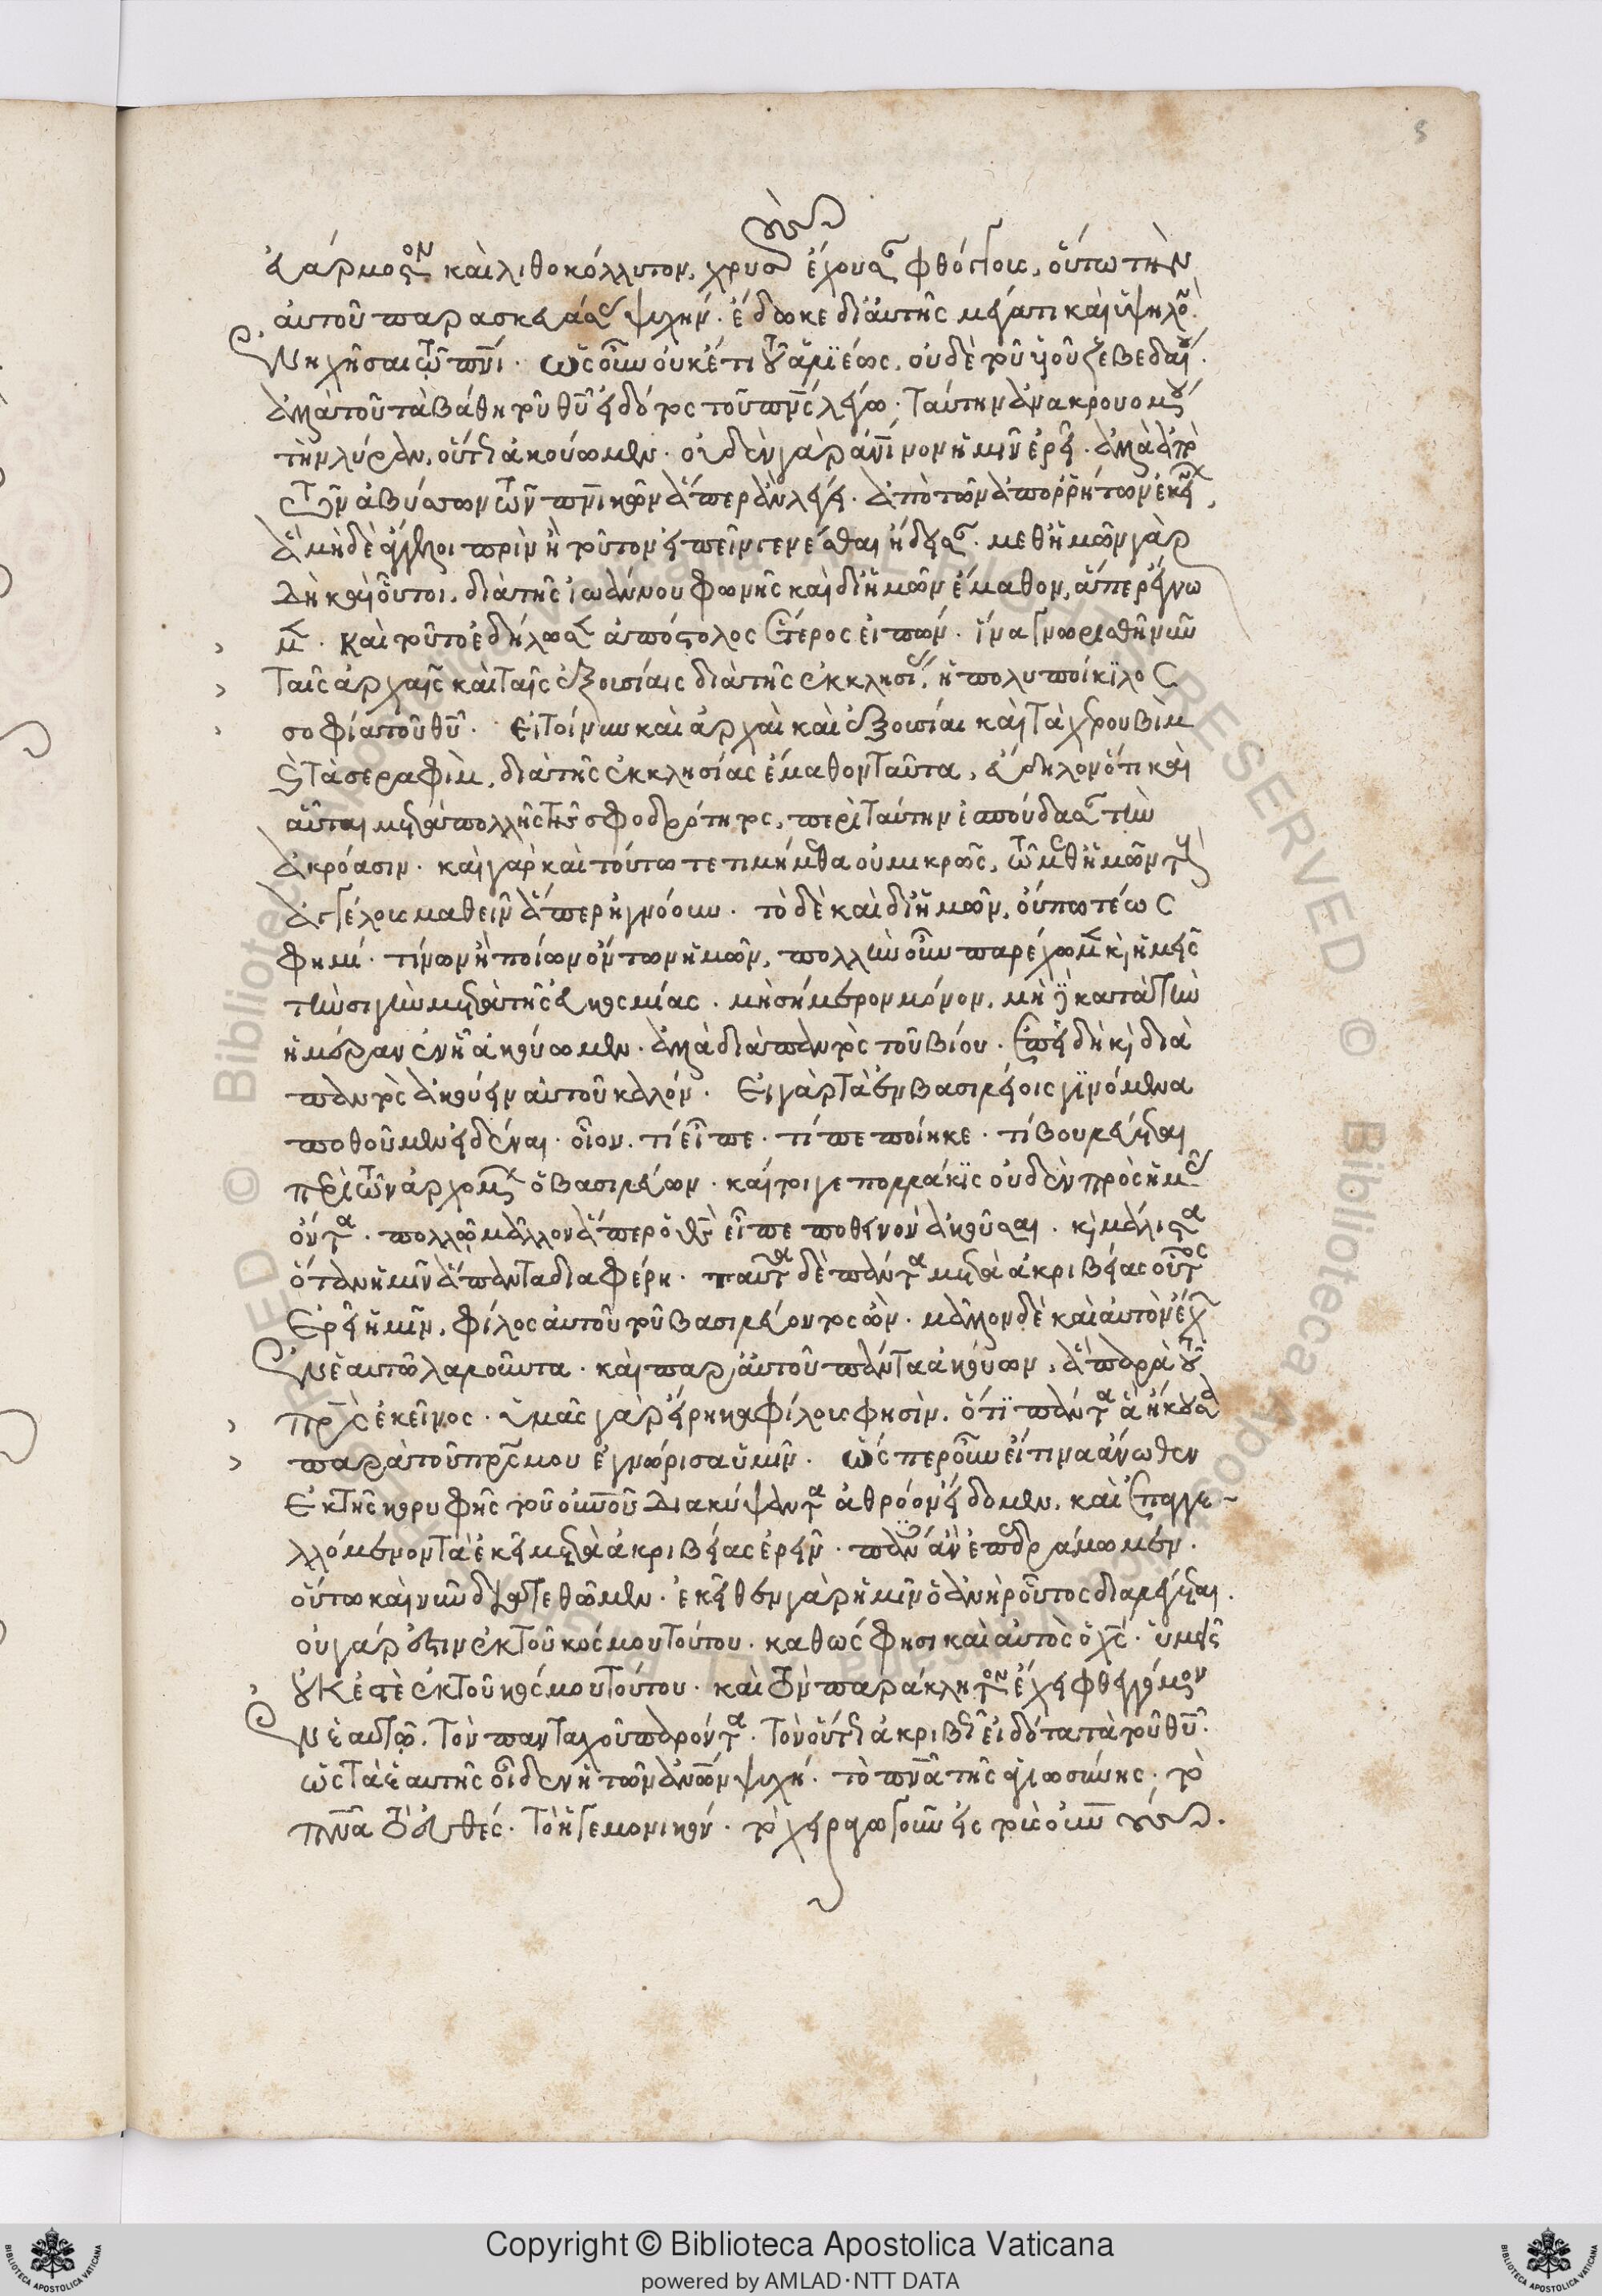 5
εὐάρμοστον καὶ λιθοκόλλητον, χρυσοῦς ἔχουσαν φθόγγους, οὕτω τὴν
αὐτοῦ παρασκευάσας ψυχήν. ἔδωκε δι' αὐτῆς μέγα τι καὶ ὑψηλὸν
ἐνηχῆσαι τῷ πνι. ὡς οὖν οὐκέτι τοῦ ἁλιέως, οὐδὲ τοῦ υἱοῦ ζεβεδαίου.
ἀλλὰ τοῦ τὰ βάθη τοῦ θυ εἰδότος τοῦ πνς λέγω. ταύτην ἀνακρουομένου
τὴν λύραν, οὕτως ἀκούωμεν. οὐδὲν γὰρ ἀνινον ἡμῖν ἐρεῖ. ἀλλὰ ἀπὸ
τῶν ἀβύσσων τῶν πνικῶν ἅπερ ἂν λέγει. ἀπὸ τῶν ἀπορρήτων ἐκείνων,
ἃ μηδὲ ἄγγελοι πρὶν ἢ τοῦτον εἰπεῖν γενέσθαι ᾔδεισαν. μεθ' ἡμῶν γὰρ
δὴ καὶ οὗτοι, διὰ τῆς ἰωάννου φωνῆς καὶ δι' ἡμῶν ἔμαθον, ἅπερ ἔγνω
μεν. καὶ τοῦτο ἐδήλωσεν ἀπόστολος ἕτερος εἰπών. ἵνα γνωρισθῇ νῦν
ταῖς ἀρχαῖς καὶ ταῖς ἐξουσίαις διὰ τῆς ἐκκλησίας, ἡ πολυποίκιλος
σοφία τοῦ θυ. εἰ τοίνυν καὶ ἀρχαὶ καὶ ἐξουσίαι καὶ τὰ χερουβὶμ
καὶ τὰ σεραφὶμ, διὰ τῆς ἐκκλησίας ἔμαθον ταῦτα, εὔδηλον ὅτι καὶ
αὗται μετὰ πολλῆς τῆς σφοδρότητος, περὶ ταύτην ἐσπούδασαν τὴν
ἀκρόασιν. καὶ γὰρ καὶ τούτω τετιμήμεθα οὐ μικρῶς, τῶ μεθ' ἡμῶν τοὺς
ἀγγέλους μαθεῖν ἅπερ ἠγνόουν. τὸ δὲ καὶ δι' ἡμῶν, οὔπω τέως
φημί. τίνων ἢ ποίων ὄντων ἡμῶν, πολλὴν οὖν παρέχωμεν καὶ ἡμεῖς
τὴν σιγὴν μετὰ τῆς εὐκοσμίας. μὴ σήμερον μόνον, μὴ δὲ κατὰ τὴν
ἡμέραν ἐν ᾗ ἀκούωμεν. ἀλλὰ διὰ παντὸς τοῦ βίου. ἐπειδὴ καὶ διὰ
παντὸς ἀκούειν αὐτοῦ καλόν. εἰ γὰρ τὰ ἐν βασιλείοις γινόμενα
ποθοῦμεν εἰδέναι. οἷον. τί εἶπε. τί πεποίηκε. τί βουλεύεται
περὶ τῶν ἀρχομένων ὁ βασιλεύων. καίτοιγε πολλάκις οὐδὲν πρὸς ἡμᾶς
ὄντα. πολλῷ μᾶλλον ἅπερ ὁ θς εἶπε ποθεινὸν ἀκοῦσαι. καὶ μάλιστα
ὅταν ἡμῖν ἅπαντα διαφέρη. ταῦτα δὲ πάντα μετὰ ἀκριβείας οὗτος
ἐρεῖ ἡμῖν, φίλος αὐτοῦ τοῦ βασιλεύοντος ὤν. μᾶλλον δὲ καὶ αὐτὸν ἔχων
ἐν ἑαυτῶ λαλοῦντα. καὶ παρ' αὐτοῦ πάντα ἀκούων, ἃ παρὰ τοῦ
πρς ἐκεῖνος. ὑμᾶς γὰρ εἴρηκα φίλους φησὶν. ὅτι πάντα ἃ ἤκουσα
παρὰ τοῦ πρς μου ἐγνώρισα ὑμῖν. ὥσπερ οὖν εἴ τινα ἄνωθεν
ἐκ τῆς κορυφῆς τοῦ οὐνοῦ διακύψαντα ἀθρόον εἴδομεν, καὶ ἐπαγγε-
λλόμενον τὰ ἐκεῖ μετὰ ἀκριβείας ἐρεῖν. πάντες ἂν ἐπεδράμωμεν.
οὕτω καὶ νῦν διατεθῶμεν. ἐκεῖθεν γὰρ ἡμῖν ὁ ἀνὴρ οὗτος διαλέγεται.
οὐ γάρ ἐστιν ἐκ τοῦ κόσμου τούτου. καθώς φησι καὶ αὐτὸς ὁ χς. ὑμεῖς
οὐκ ἐστὲ ἐκ τοῦ κόσμου τούτου. καὶ τὸν παράκλητον ἔχει φθεγγόμενον
ἐν ἑαυτῷ. τὸν πανταχοῦ παρόντα. τὸν οὕτως ἀκριβῶς εἰδότα τὰ τοῦ θυ.
ὡς τὰ ἑαυτῆς οἶδεν ἡ τῶν ἀνων ψυχή. τὸ πνα τῆς ἁγιωσύνης. τὸ
πνα τὸ εὐθές. τὸ ἡγεμονικόν. τὸ χειραγωγοῦν εἰς τοὺς οὐνούς.
Copyright © Biblioteca Apostolica Vaticana
powered by AMLAD·NTT DATA